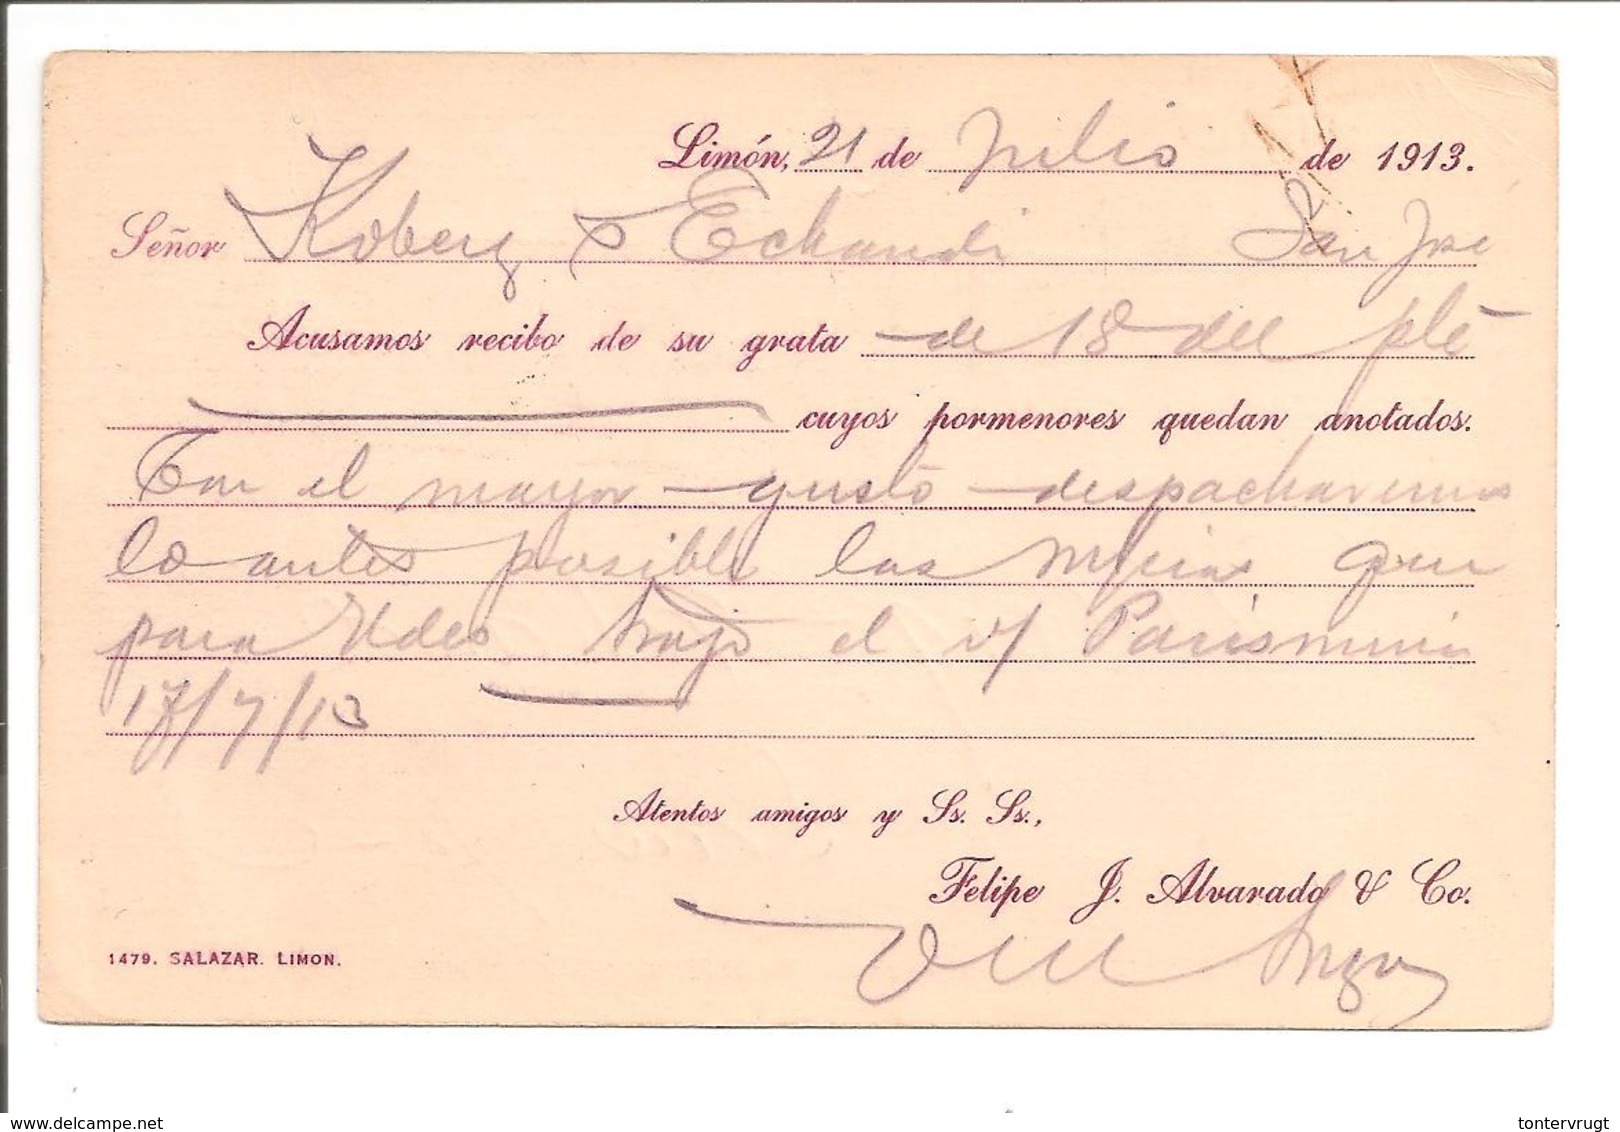 Limón, 21 de Julio de 1913.
Señor Koberg & Echandi San José
Acusamos recibo de su grata de 18 del pte
cuyos pormenores quedan anotados.
Con el mayor gusto despacharemos
lo antes posible las mfcias que
para Udes trajo el v/ Parismina
17/7/13
Atentos amigos y Ss. Ss.,
Felipe J. Alvarado & Co.
1479. SALAZAR. LIMON.
delcampe.net
tontervrugt